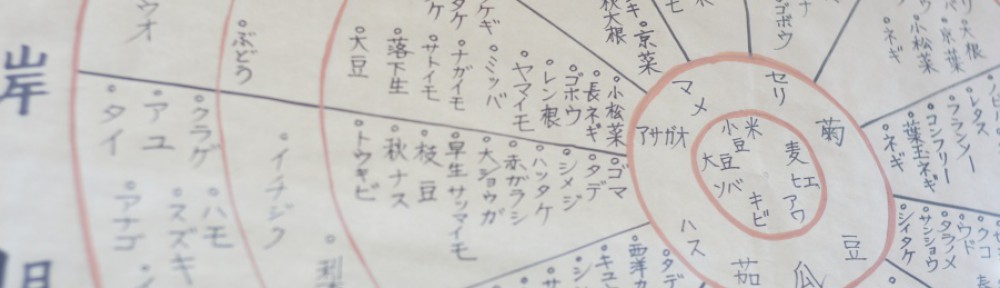 岸
ウオ
ぶどう
大豆
落下生
サトイモ
ナガイモ
ミツバ
ヤマイモ
レン根
ゴボウ
長ネギ
小松菜
秋大根
京菜
ゴボウ
ネギ
小松菜
京菜
大根
レタス
コンフリー
葉玉ネギ
ネギ
シイタケ
サンショウ
タラノメ
ウド
クコ
マメ
セリ
アサガオ
菊
ハス
茄
瓜
豆
米
小豆
大豆
ソバ
キビ
麦
ヒエ
アワ
ゴマ
タデ
シメジ
ハツタケ
赤ガラシ
大ショウガ
早生サツマイモ
枝豆
秋ナス
トウキビ
イチジク
クラゲ
アユ
タイ
ハモ
スズキ
アナゴ
タデ